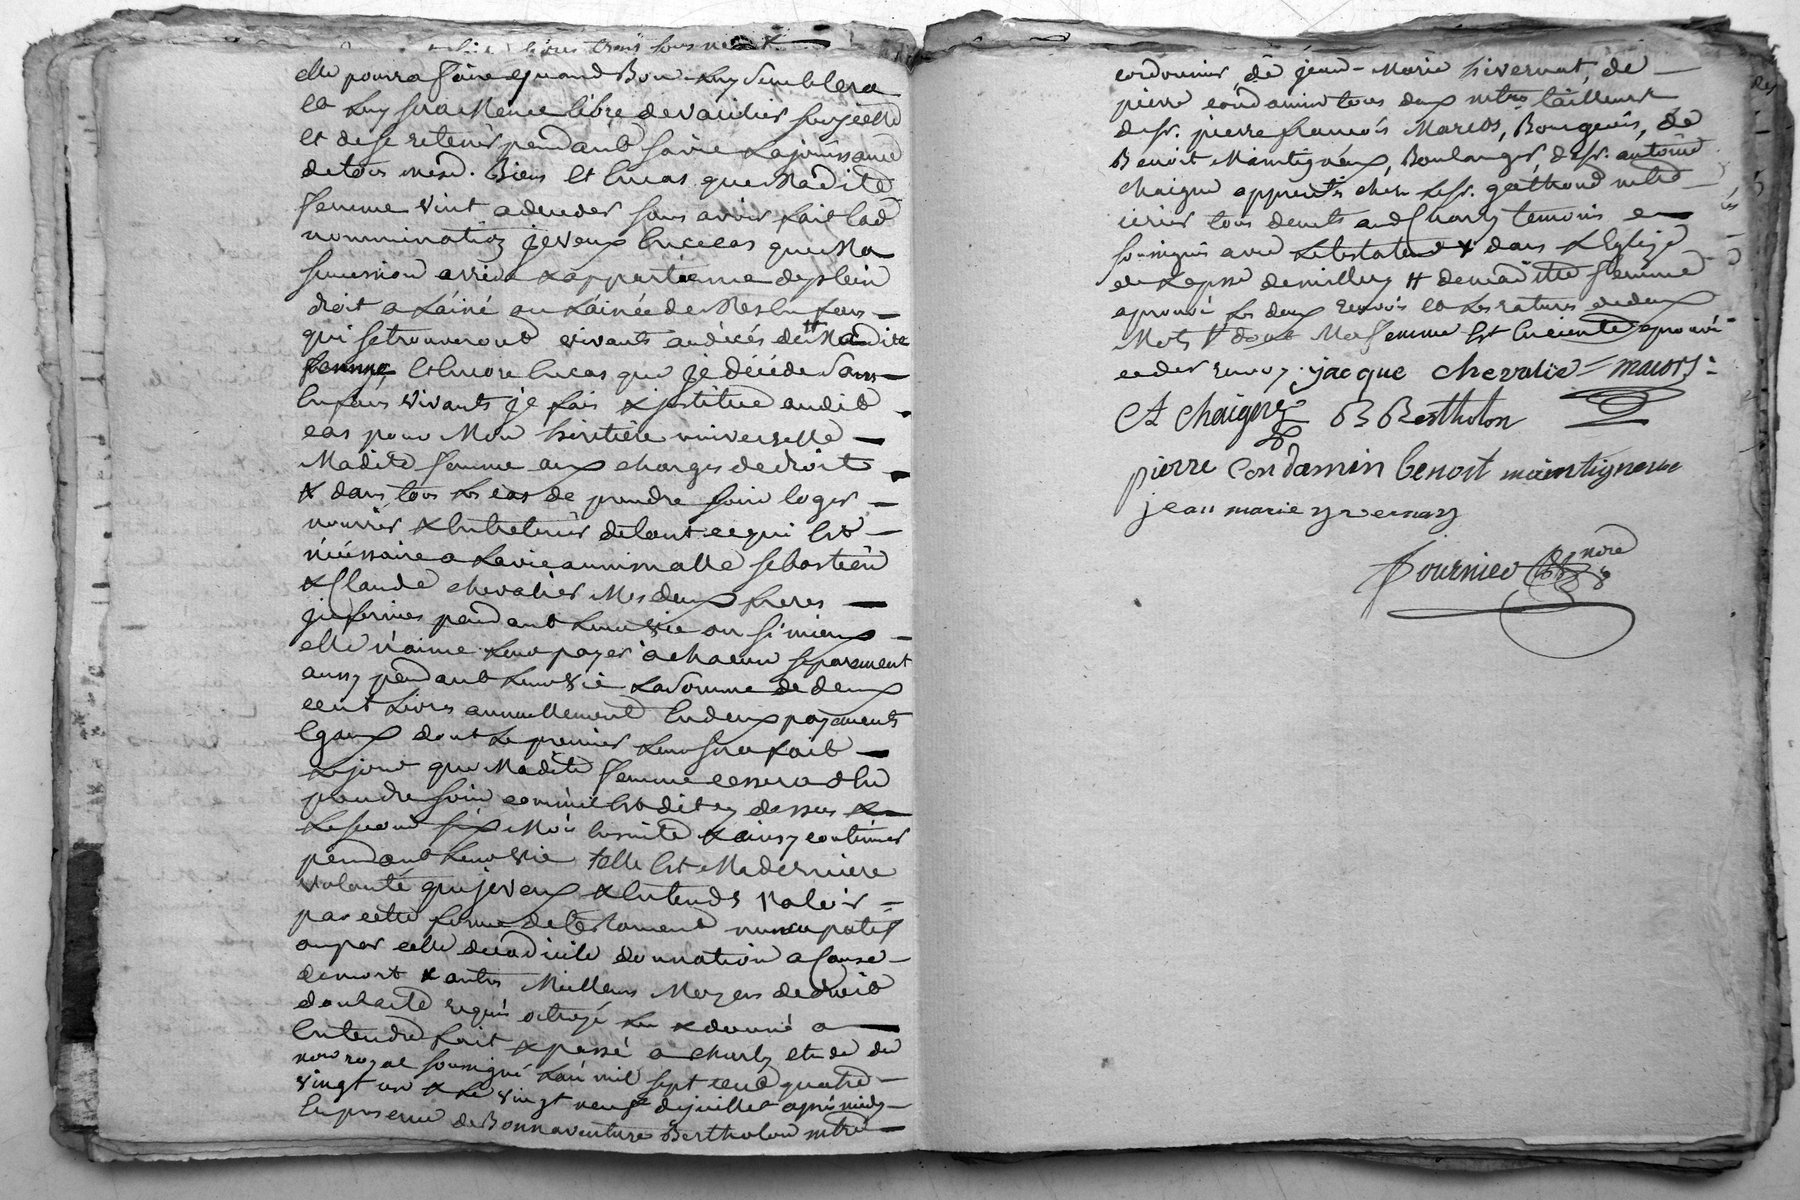 livres trois sous
elle pourra faire quand Bon luy Semblera
et luy sera Meme libre de
et de se retenir pendant sa vie la jouissance
de tous mesd. Biens et En cas que Madite
femme vint a deceder sans avoir fait lad
nommination je veux En ce cas que Ma
succession arrive & appartienne de plein
droit a l'ainé ou l'ainée de Mes Enfans
qui se trouveront vivants au décés de # Madite
femme Et Encore En cas que je décéde Sans
Enfans vivants je fais & jnstitue audit
cas pour Mon heritiere universelle
Madite femme aux charges de droit
& dans tous les cas de prendre soin loger
nourrir & Entretenir de tout ce qui Est
nécéssaire a la vie annimalle Sebastien
& Claude chevalier Mes deux freres
jnfirmes pendant leur vie ou si mieux
elle n'aime leur payer a chacun separement
aussy pendant leur vie la Somme de deux
cent Livres annuellement En deux payements
Egaux dont le premier leur sera fait
le jour que Madite femme cessera d'En
prendre soin comme Est dit cy dessus &
le second six Mois Ensuite & ainsy continuer
pendant leur vie telle Est Ma derniere
volonté que je veux & Entends valoir
par cette forme de testament nuncupatif
ou par celle de codicile donnation a Cause
de mort & autres Meilleurs Moyens de droit
dont acte requis octroyé lu & donné a
Entendre fait & passé a charly etude du
nore royal soussigné l'an mil sept cent quatre
vingt un & le vingt neuf de juillet apres midy
En presence de Bonnaventure Bertholon mtre
cordonnier de jean-Marie hivernat, de
pierre condamin tous deux mtres tailleurs
de sr. pierre francois Marcos, Bourgeois, de
Benoit Maintigneux, Boulanger, de sr. antoine
chaigne apprenti chez le sr. mtre
cirier tous demts aud Charly temoins
soussignés avec le testateur & dans l'Eglize
de la psse de millery # de madite femme
aprouvé les deux renvois et les ratures de deux
Mots # dont Ma femme Est Enceinte aprouvé
ce der renvoy. jacque chevalie marcos
A Chaigne B Bertholon
pierre Condamin benoit maintigneux
jean marie yvernay
fournier nore